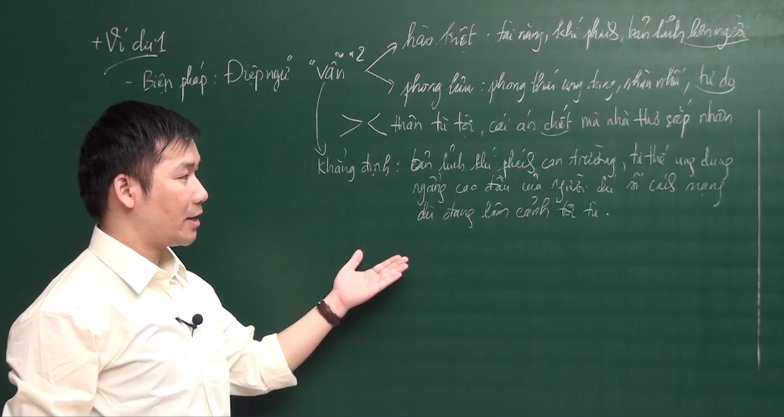 + Ví dụ 1
- Biện pháp: Điệp ngữ "Vẫn" 2
hào kiệt: tài năng, khí phách, bản lĩnh
phong lưu: phong thái ung dung, nhàn nhã, tự do
>< thân tù tội, cái án chết mà nhà thơ sắp nhận
Khẳng định: bản lĩnh khí phách can trường, tư thế ung dung
ngẩng cao đầu của người chí sĩ cách mạng
dù đang lâm cảnh tội tù.